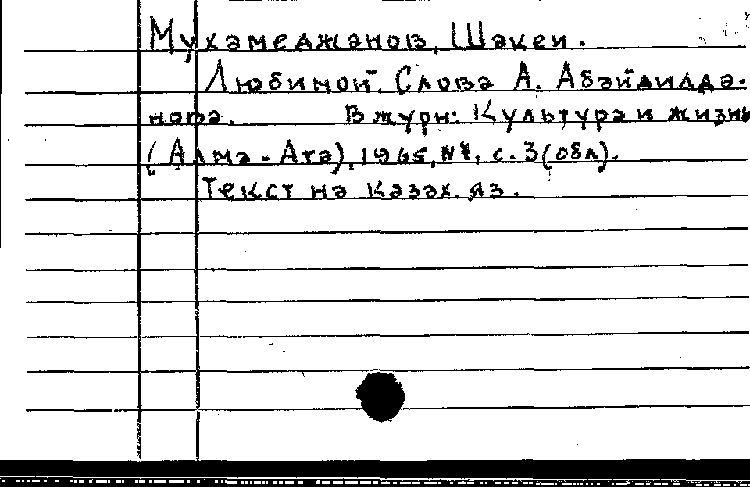 Мухамеджанов, Шакен.
Любимой. Слова А. Абайдилда-
нова. В журн: Культура и жизнь
(Алма-Ата), 1965, с. 3 (обл).
Текст на казах. яз.